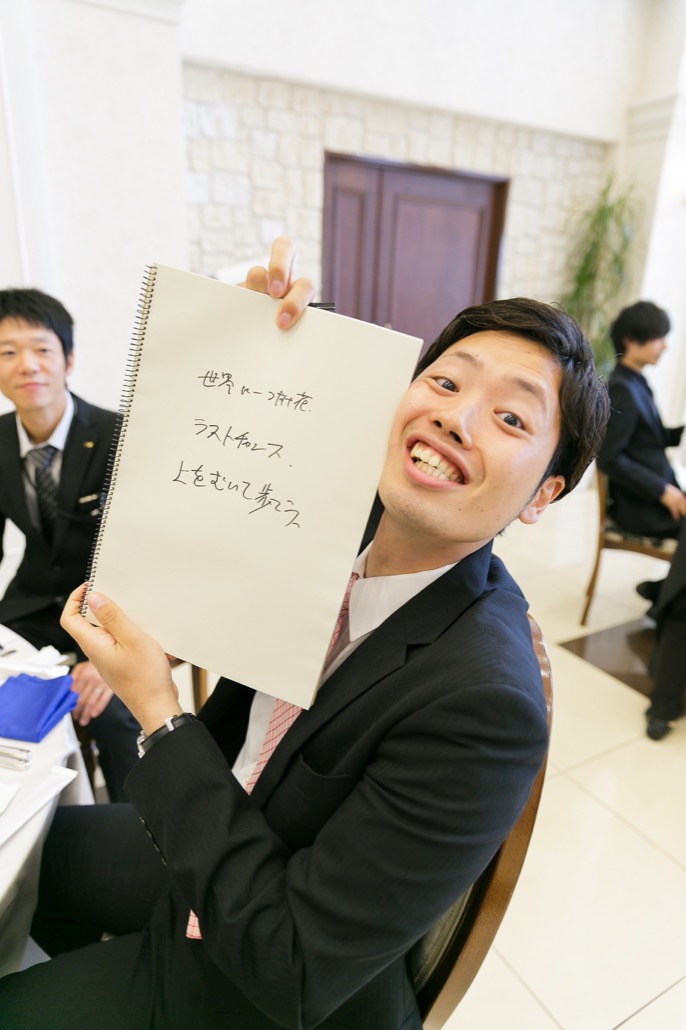 世界に一つだけの花.
ラストチャンス.
上をむいて歩こう